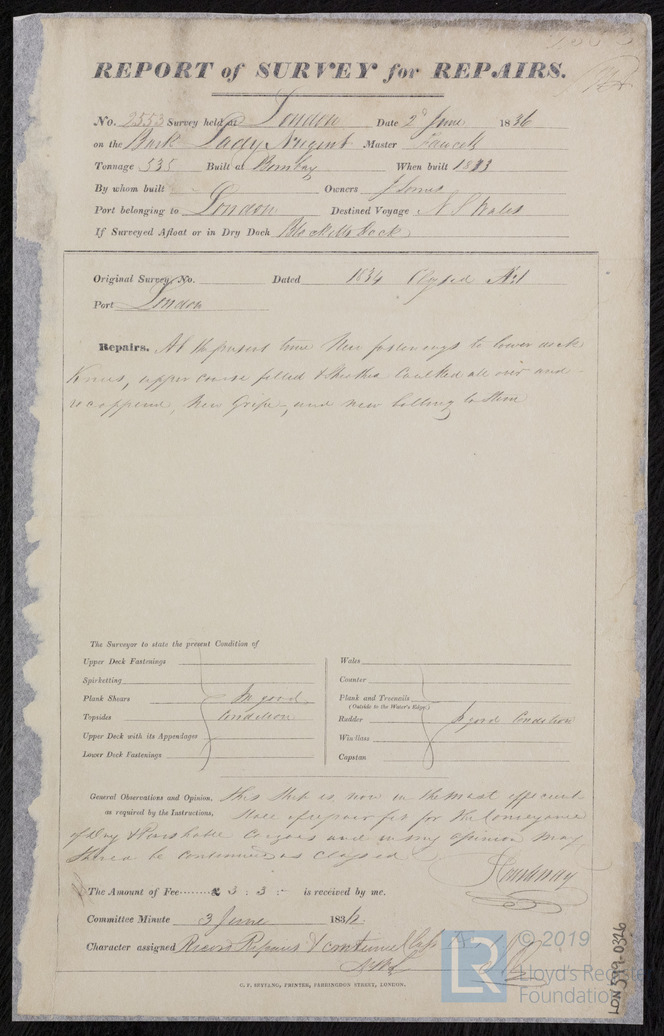 REPORT of SURVEY for REPAIRS.
No. 2553 Survey held at London Date 2d June 1836
on the Bark Lady Nugent Master Fawcett
Tonnage 535 Built at Bombay When built 1813
By whom built Owners J Somes
Port belonging to London Destined Voyage N S Wales
If Surveyed Afloat or in Dry Dock Blackwall Dock
Original Survey No. Dated 1834 Classed A1
Port London
Repairs. At the present time New fastenings to lower deck
Knees, upper course felted & Sheathed Caulked all over and
recoppered, New Gripe, and new bolting to Stem
The Surveyor to state the present Condition of
Upper Deck Fastenings
Spirketting
Plank Shears In good
Topsides Condition
Upper Deck with its Appendages
Lower Deck Fastenings
Wales
Counter
Plank and Treenails
(Outside to the Water's Edge.)
Rudder In good Condition
Windlass
Capstan
General Observations and Opinion, This Ship is now in the most efficient
as required by the Instructions, State of repair fit for the Conveyance
of Dry & Perishable Cargoes and in my opinion may
be Continued as Classed
J Courtenay
The Amount of Fee £ 3 : 3 : - is received by me.
Committee Minute 3 June 1836
Character assigned Record Repairs & continued Class
C. F. SEYFANG, PRINTER, FARRINGDON STREET, LONDON.
LR © 2019
Lloyd's Register
Foundation
LON 599-0326